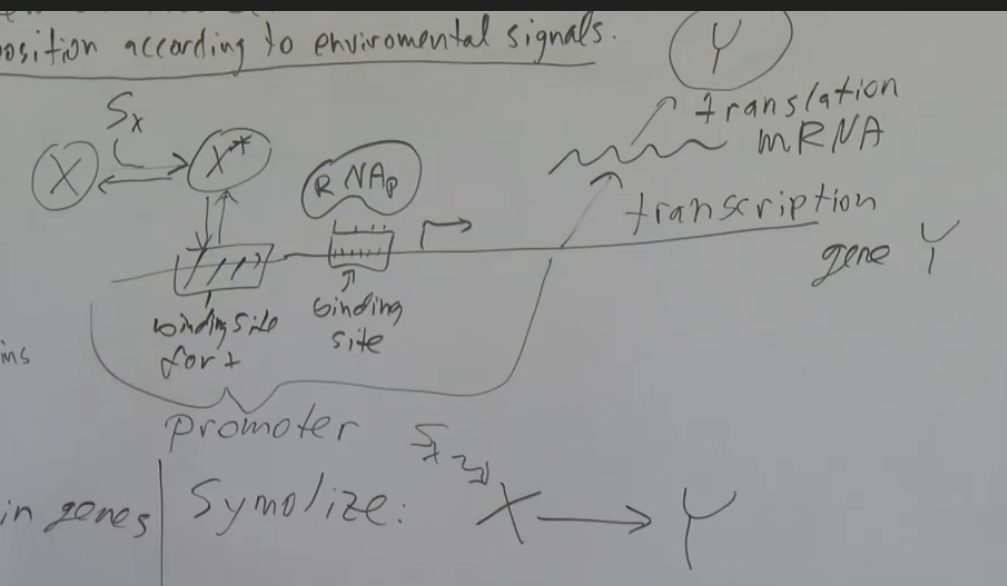 osition according to enviromental signals.
Y
translation
mRNA
Sx
X
X*
RNAp
transcription
gene Y
binding site
for x
binding
site
ins
promoter
Sx
in genes
Symolize:
X → Y